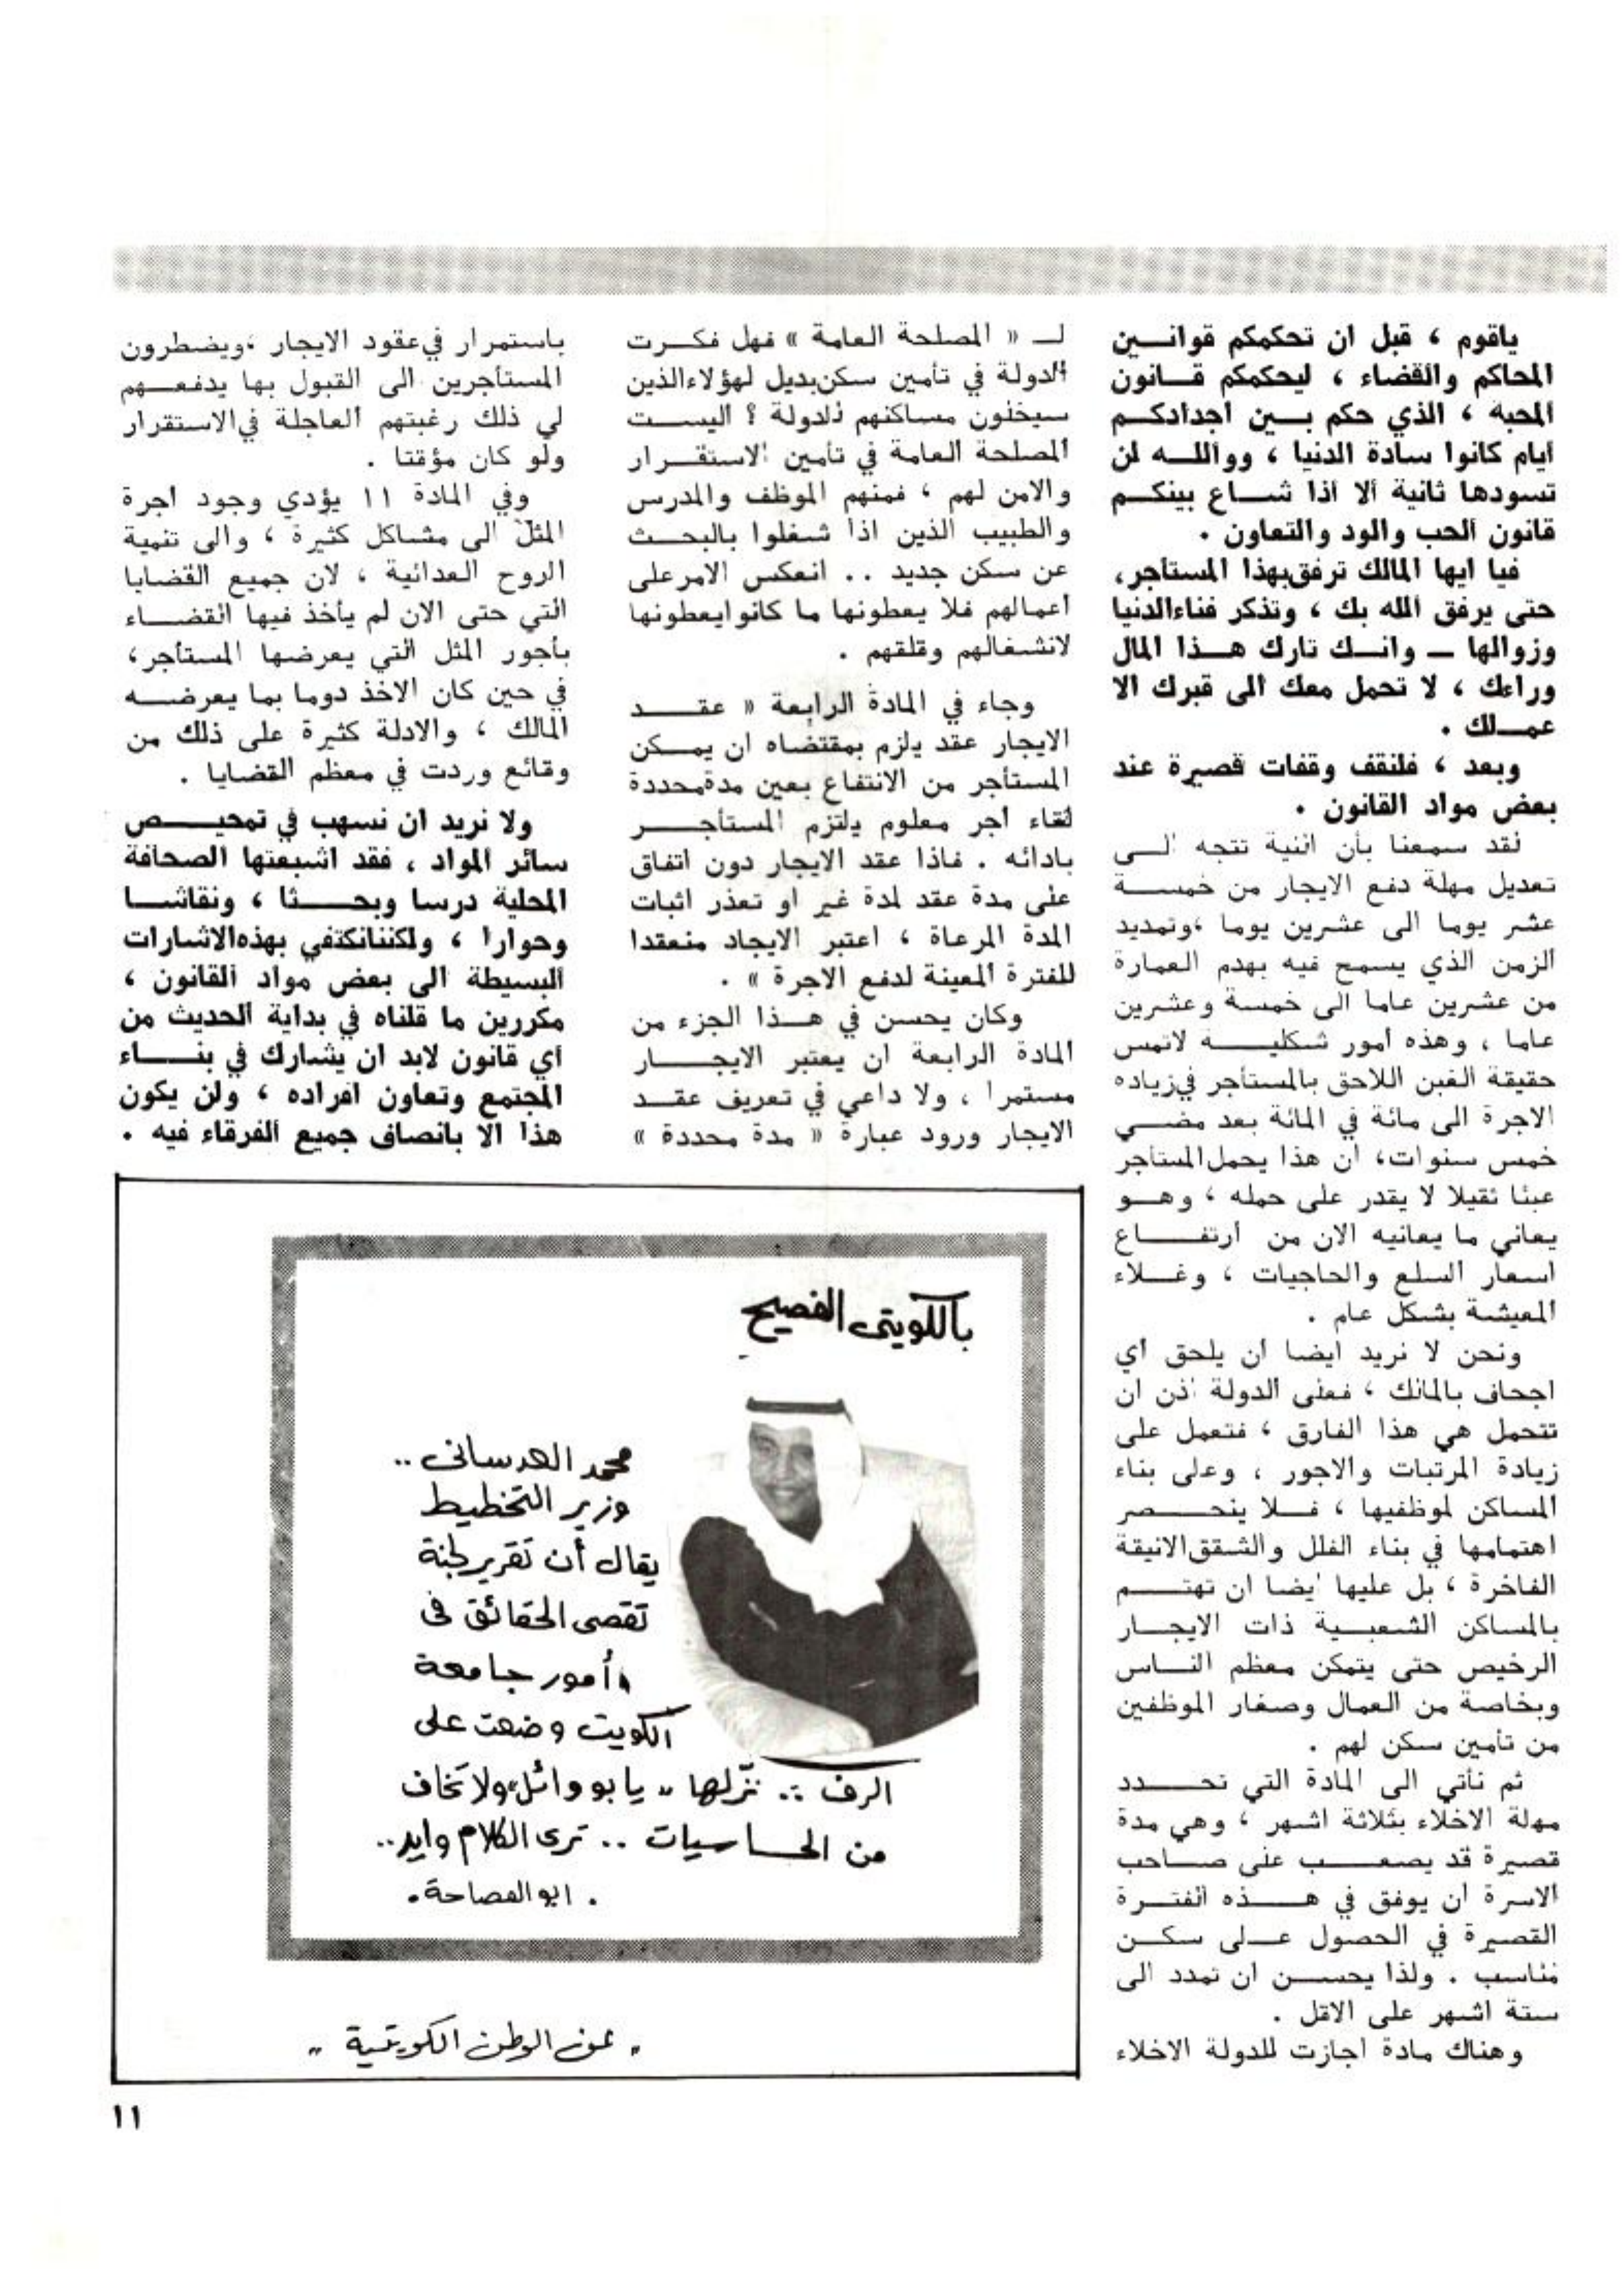 ياقوم ، قبل ان تحكمكم قوانــين
المحاكم والقضاء ، ليحكمكم قــانون
المحبة ، الذي حكم بــين أجدادكــم
أيام كانوا سادة الدنيا ، ووالله لن
تسودها ثانية الا اذا شــاع بينكــم
قانون الحب والود والتعاون .
فيا ايها المالك ترفق بهذا المستأجر،
حتى يرفق الله بك ، وتذكر فناءالدنيا
وزوالها ــ وانــك تارك هــذا المال
وراءك ، لا تحمل معك الى قبرك الا
عمــلك .
وبعد ، فلنقف وقفات قصيرة عند
بعض مواد القانون .
لقد سمعنا بأن النية تتجه الــى
تعديل مهلة دفع الايجار من خمســة
عشر يوما الى عشرين يوما ،وتمديد
الزمن الذي يسمح فيه بهدم العمارة
من عشرين عاما الى خمسة وعشرين
عاما ، وهذه أمور شكليــة لاتمس
حقيقة الغبن اللاحق بالمستأجر في زياده
الاجرة الى مائة في المائة بعد مضــي
خمس سنوات، ان هذا يحمل المستأجر
عبئا ثقيلا لا يقدر على حمله ، وهــو
يعاني ما يعانيه الان من ارتفــاع
اسعار السلع والحاجيات ، وغــلاء
المعيشة بشكل عام .
ونحن لا نريد ايضا ان يلحق أي
اجحاف بالمالك ، فعلى الدولة اذن ان
تتحمل هي هذا الفارق ، فتعمل على
زيادة المرتبات والاجور ، وعلى بناء
المساكن لموظفيها ، فــلا ينحــصر
اهتمامها في بناء الفلل والشقق الانيقة
الفاخرة ، بل عليها ايضا ان تهتــم
بالمساكن الشعبــية ذات الايجــار
الرخيص حتى يتمكن معظم النــاس
وبخاصة من العمال وصغار الموظفين
من تأمين سكن لهم .
ثم نأتي الى المادة التي تحــدد
مهلة الاخلاء بثلاثة اشهر ، وهي مدة
قصيرة قد يصعــب على صــاحب
الاسرة ان يوفق في هــذه الفتــرة
القصيرة في الحصول عــلى سكــن
مناسب . ولذا يحســن ان تمدد الى
ستة اشهر على الاقل .
وهناك مادة اجازت للدولة الاخلاء
لــ « المصلحة العامة » فهل فكــرت
الدولة في تأمين سكن بديل لهؤلاءالذين
سيخلون مساكنهم للدولة ؟ اليســت
المصلحة العامة في تأمين الاستقــرار
والامن لهم ، فمنهم الموظف والمدرس
والطبيب الذين اذا شغلوا بالبحــث
عن سكن جديد .. انعكس الامر على
أعمالهم فلا يعطونها ما كانوايعطونها
لانشغالهم وقلقهم .
وجاء في المادة الرابعة « عقــد
الايجار عقد يلزم بمقتضاه ان يمــكن
المستأجر من الانتفاع بعين مدةمحددة
لقاء أجر معلوم يلتزم المستأجــر
بادائه . فاذا عقد الايجار دون اتفاق
على مدة عقد لمدة غير او تعذر اثبات
المدة المرعاة ، اعتبر الايجاد منعقدا
للفترة المعينة لدفع الاجرة » .
وكان يحسن في هــذا الجزء من
المادة الرابعة ان يعتبر الايجــار
مستمرا ، ولا داعي في تعريف عقــد
الايجار ورود عبارة « مدة محددة »
باستمرار في عقود الايجار ،ويضطرون
المستأجرين الى القبول بها يدفعــهم
لي ذلك رغبتهم العاجلة في الاستقرار
ولو كان مؤقتا .
وفي المادة ١١ يؤدي وجود أجرة
المثل الى مشاكل كثيرة ، والى تنمية
الروح العدائية ، لان جميع القضايا
التي حتى الان لم يأخذ فيها القضــاء
بأجور المثل التي يعرضها المستأجر،
في حين كان الاخذ دوما بما يعرضــه
المالك ، والادلة كثيرة على ذلك من
وقائع وردت في معظم القضايا .
ولا نريد ان نسهب في تمحيــص
سائر المواد ، فقد اشبعتها الصحافة
المحلية درسا وبحــثا ، ونقاشــا
وحوارا ، ولكننانكتفي بهذه الاشارات
البسيطة الى بعض مواد القانون ،
مكررين ما قلناه في بداية الحديث من
أي قانون لابد ان يشارك في بنــاء
المجتمع وتعاون افراده ، ولن يكون
هذا الا بانصاف جميع الفرقاء فيه .
بالكويتي الفصيح
محمد العدساني ..
وزير التخطيط
يقال أن تقرير لجنة
تقصي الحقائق في
أمور جامعة
الكويت وضعت على
الرف .. نزّلها " يا بو وائل" ولا تخاف
من الحــاسيات .. ترى الكلام وايد ..
. ابو الفصاحة .
" عن الوطن الكويتية "
١١